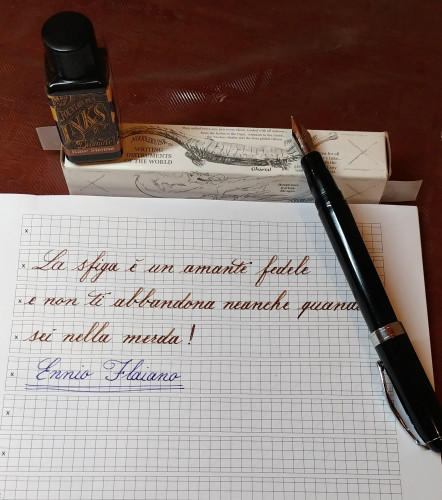 INKS
WRITING
INSTRUMENTS
OF THE WORLD
La sfiga è un amante fedele
e non ti abbandona neanche quando
sei nella merda!
Ennio Flaiano